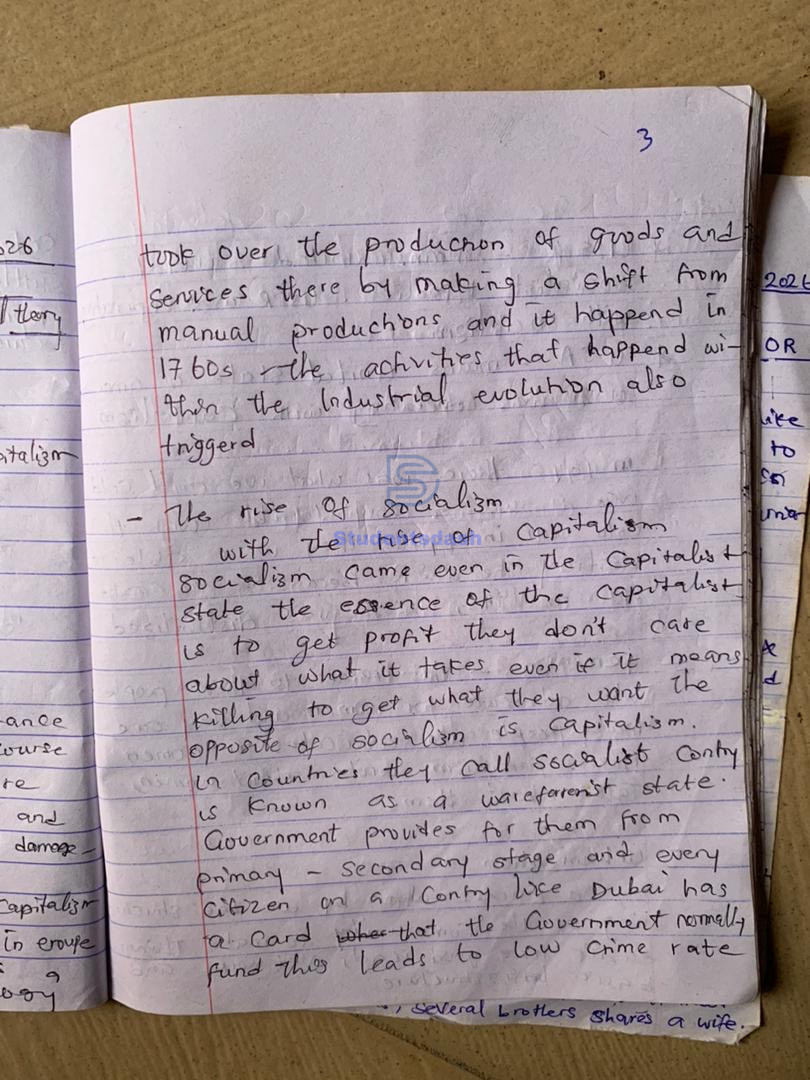 3
took over the production of goods and
services there by making a shift from
manual productions and it happend in
1760s - the activities that happend wi-
thin the Industrial evolution also
triggerd
- The rise of socialism
with the rise of capitalism
socialism came even in the capitalist
state the essence of the capitalist
is to get profit they don't care
about what it takes even if it means
killing to get what they want the
opposite of socialism is capitalism.
in countries they call socialist contry
is known as a warefarerist state.
Government provides for them from
primary - secondary stage and every
citizen in a contry like Dubai has
a card that the Government normally
fund this leads to low crime rate
Studentsdash
026
theory
italizm
ance
ourse
re
and
damage
capitalizm
in eroupe
ogy
2026
OR
like
to
, several brothers shares a wife.